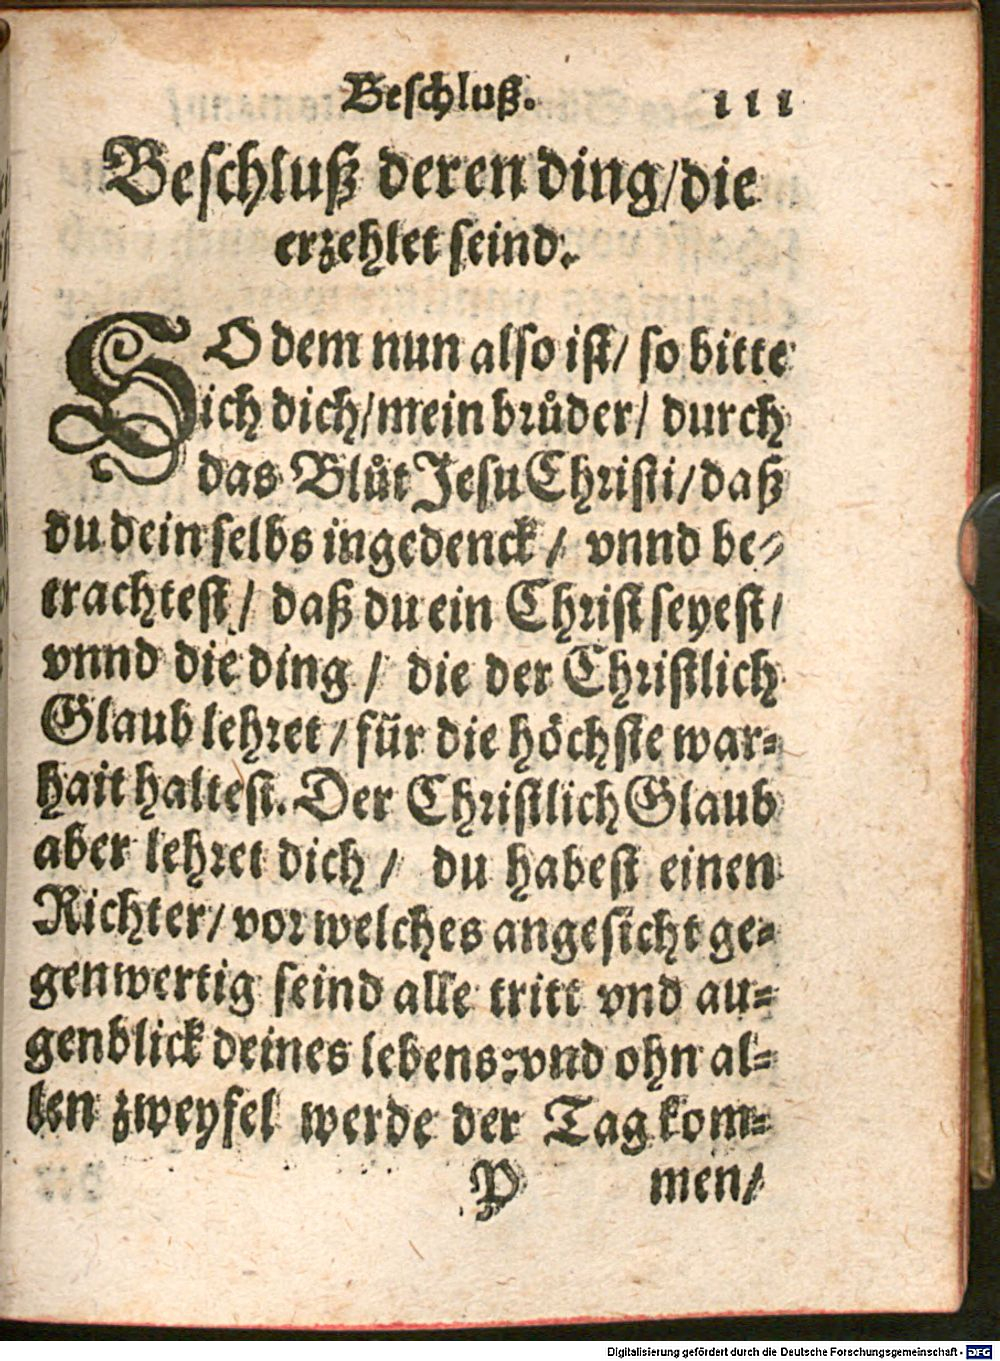 Beschluß. 111
Beschluß deren ding/die
erzehlet seind.
SO dem nun also ist/ so bitte
ich dich/mein brůder/ durch
das Blůt Jesu Christi/daß
du dein selbs ingedenck/ vnnd be-
trachtest/ daß du ein Christ seyest/
vnnd die ding/ die der Christlich
Glaub lehret/für die höchste war-
hait haltest. Der Christlich Glaub
aber lehret dich/ du habest einen
Richter/vor welches angesicht ge-
genwertig seind alle tritt vnd au-
genblick deines lebens: vnd ohn al-
len zweyfel werde der Tag kom-
P men/
Digitalisierung gefördert durch die Deutsche Forschungsgemeinschaft - DFG